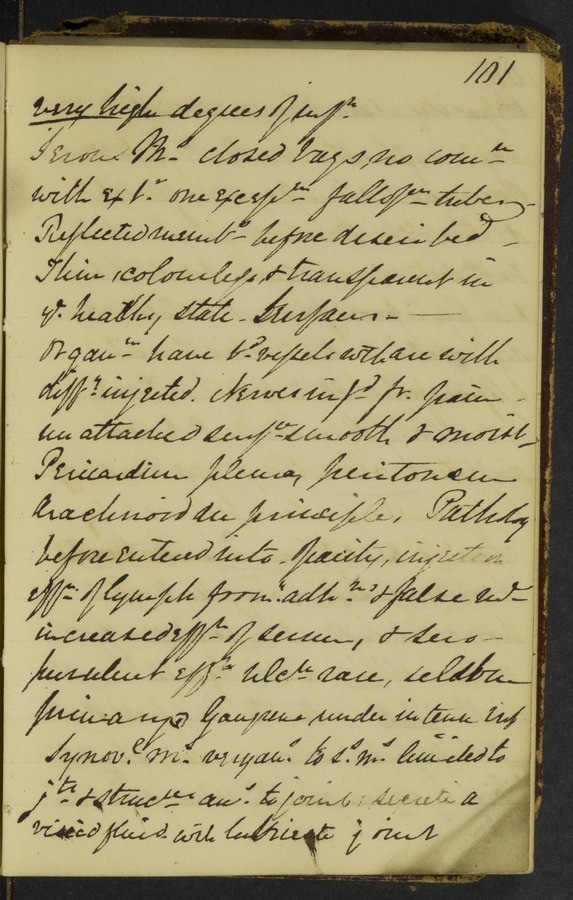 101
very high degrees of inf.n
Serous M.s closed bags, no com.n
with ext.r one except.n fallop.n tubes
Reflected memb.s before described
Thin, colourless, & transparent in
y.e healthy state. Surfaces
Organ.n have b.d vessels are with
diff.y injected. Nerves inf.d fr. pain
unattached surf.e smooth & moist
Pericardium pleura, peritoneum
Arachnoid are principle, Pathology
before entered into. Opacity, injection
eff.n of lymph from adh.ns & false
increased eff.n of serum, & sero
purulent eff.n ulc.n rare, seldom
primary Gangrene under intense inf
Synov.l m.s very an.s to s.s m.s limited to
j.ts & struc.res an.s to joints secrete a
viscid fluid lubricate joint